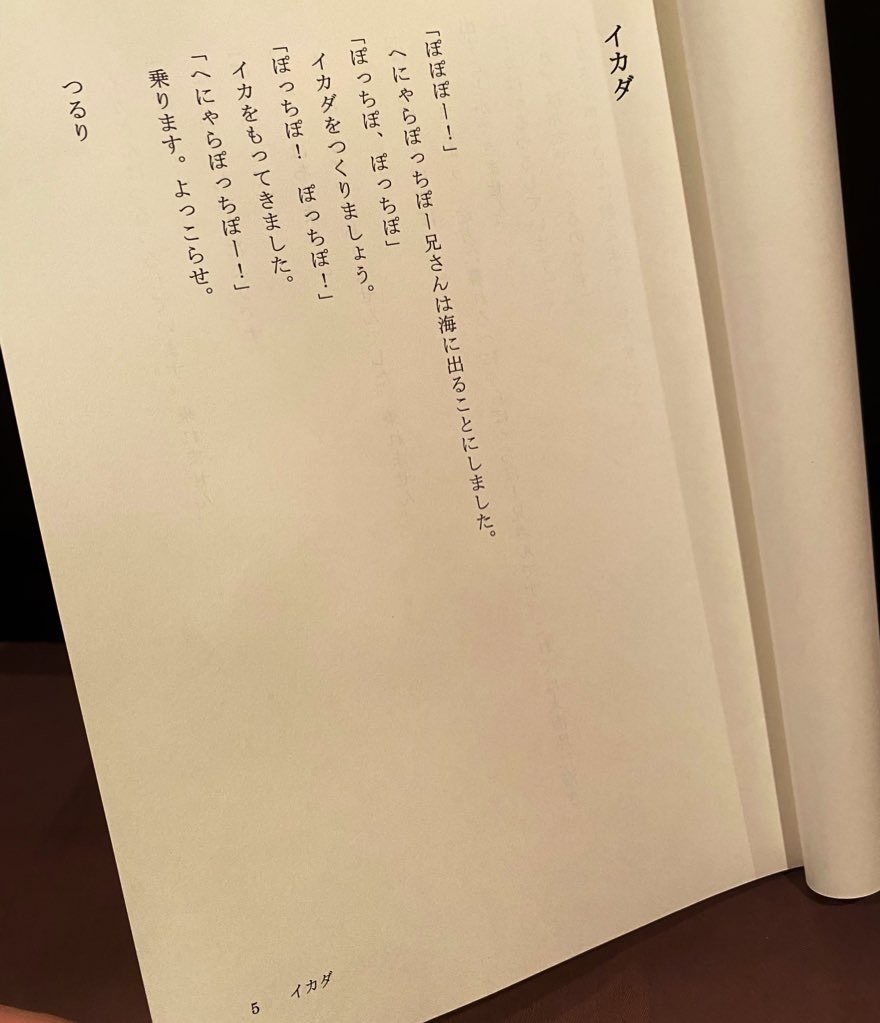 イカダ
「ぽぽぽー！」
へにゃらぽっちぽー兄さんは海に出ることにしました。
「ぽっちぽ、ぽっちぽ」
イカダをつくりましょう。
「ぽっちぽ！　ぽっちぽ！」
イカをもってきました。
「へにゃらぽっちぽー！」
乗ります。よっこらせ。
つるり
5　イカダ